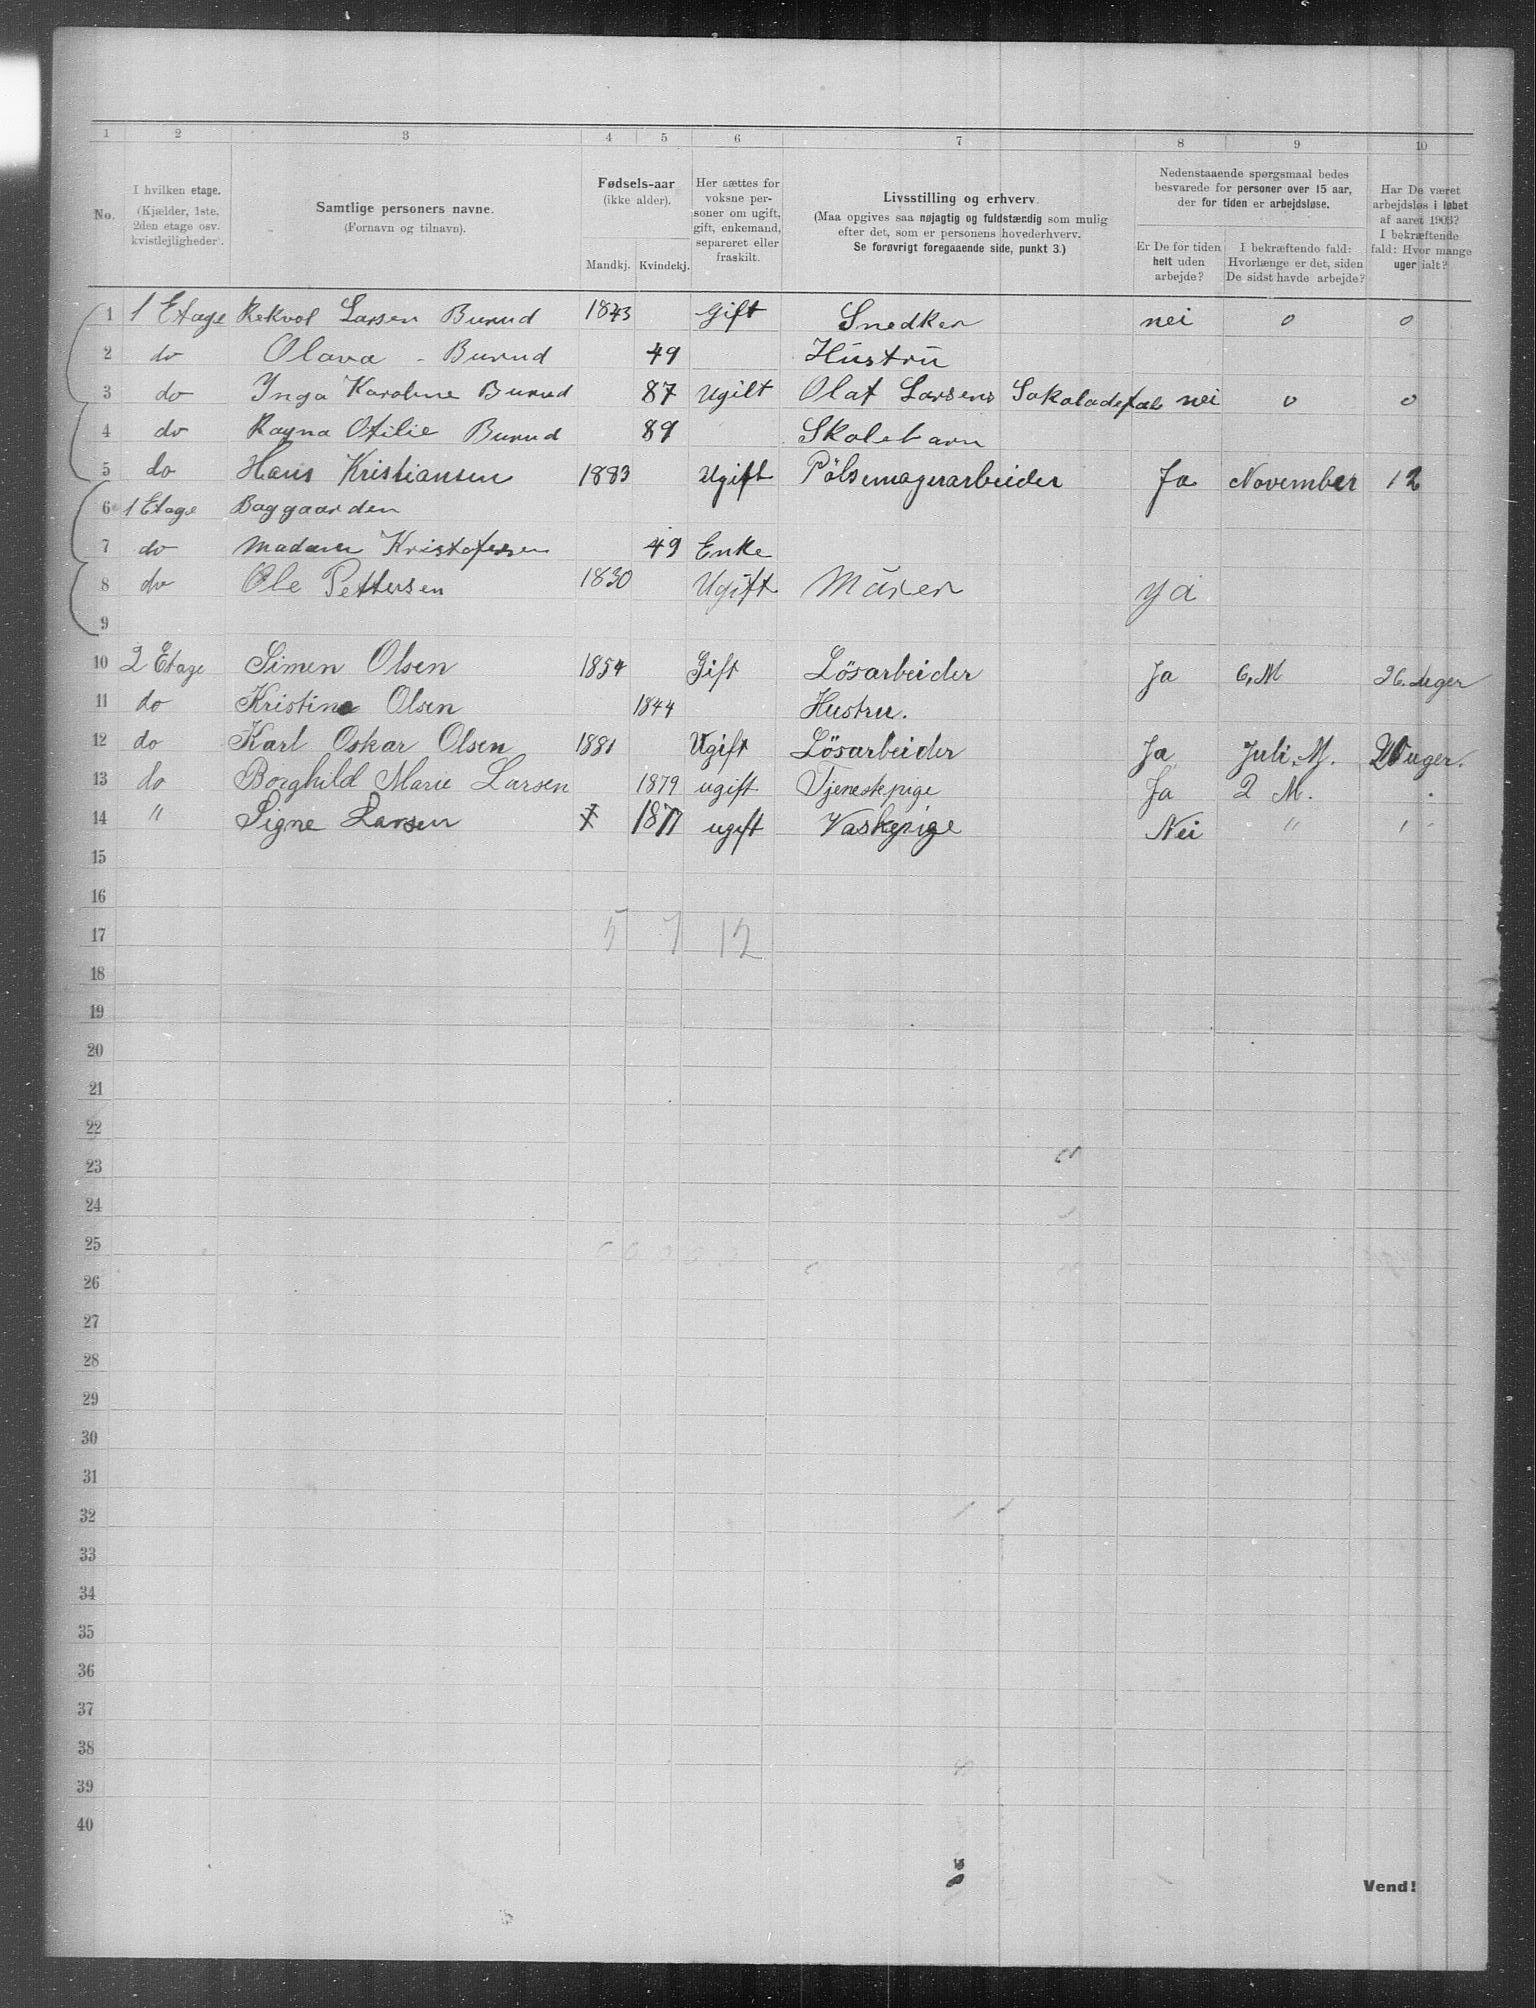 1 2 3 4 5 6 7 8 9 10
No.
I hvilken etage.
(Kjælder, 1ste,
2den etage osv.
kvistlejligheder).
Samtlige personers navne.
(Fornavn og tilnavn).
Fødsels-aar
(ikke alder).
Mandkj. Kvindekj.
Her sættes for
voksne per-
soner om ugift,
gift, enkemand,
separeret eller
fraskilt.
Livsstilling og erhverv.
(Maa opgives saa nøjagtig og fuldstændig som mulig
efter det, som er personens hovederhverv.
Se forøvrigt foregaaende side, punkt 3.)
Nedenstaaende spørgsmaal bedes
besvarede for personer over 15 aar,
der for tiden er arbejdsløse.
Er De for tiden
helt uden
arbejde?
I bekræftende fald:
Hvorlænge er det, siden
De sidst havde arbejde?
Har De været
arbejdsløs i løbet
af aaret 1903?
I bekræftende
fald: Hvor mange
uger ialt?
1 1 Etage Rekvol Larsen Burud 1843 Gift Snedker nei 0 0
2 do Olava - Burud 49 Hustru
3 do Inga Karoline Burud 87 Ugift Olaf Larsens Sokoladefab nei 0 0
4 do Ragna Otilie Burud 89 Skolebarn
5 do Hans Kristiansen 1883 Ugift Pölsemagerarbeider Ja November 12
6 1 Etage Baggaarden
7 do Madam Kristofersen 49 Enke
8 do Ole Pettersen 1830 Ugift Murer ya
9
10 2 Etage Simen Olsen 1854 Gift Lösarbeider Ja 6, M 26. Uger
11 do Kristine Olsen 1844 Hustru.
12 do Karl Oskar Olsen 1881 Ugift Lösarbeider Ja Juli, M. uger.
13 do Borghild Marie Larsen 1879 ugift Tjenestepige Ja 2 M.
14 " Signe Larsen 1877 ugift Vaskepige Nei " "
15
16
17 5 7 12
18
19
20
21
22
23
24
25
26
27
28
29
30
31
32
33
34
35
36
37
38
39
40
Vend!